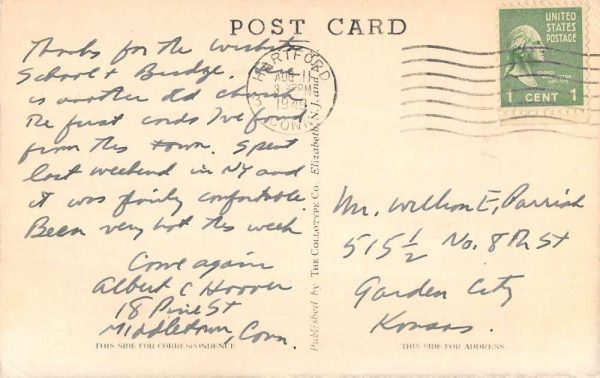 POST CARD
Thanks for the
School + Bridge.
is another old
The first cards I've found
from this town. Spent
last weekend in NY and
it was fairly comfortable.
Been very hot this week
Come again
Albert C Hoover
18 Pine St
Middletown, Conn.
THIS SIDE FOR CORRESPONDENCE
Published by THE COLLOTYPE CO., Elizabeth, N. J. and
HARTFORD
AUG 11
PM
CONN.
UNITED
STATES
POSTAGE
1 CENT 1
Mr. William E. Parrish
515 1/2 No. 8th St
Garden City
Kansas.
THIS SIDE FOR ADDRESS